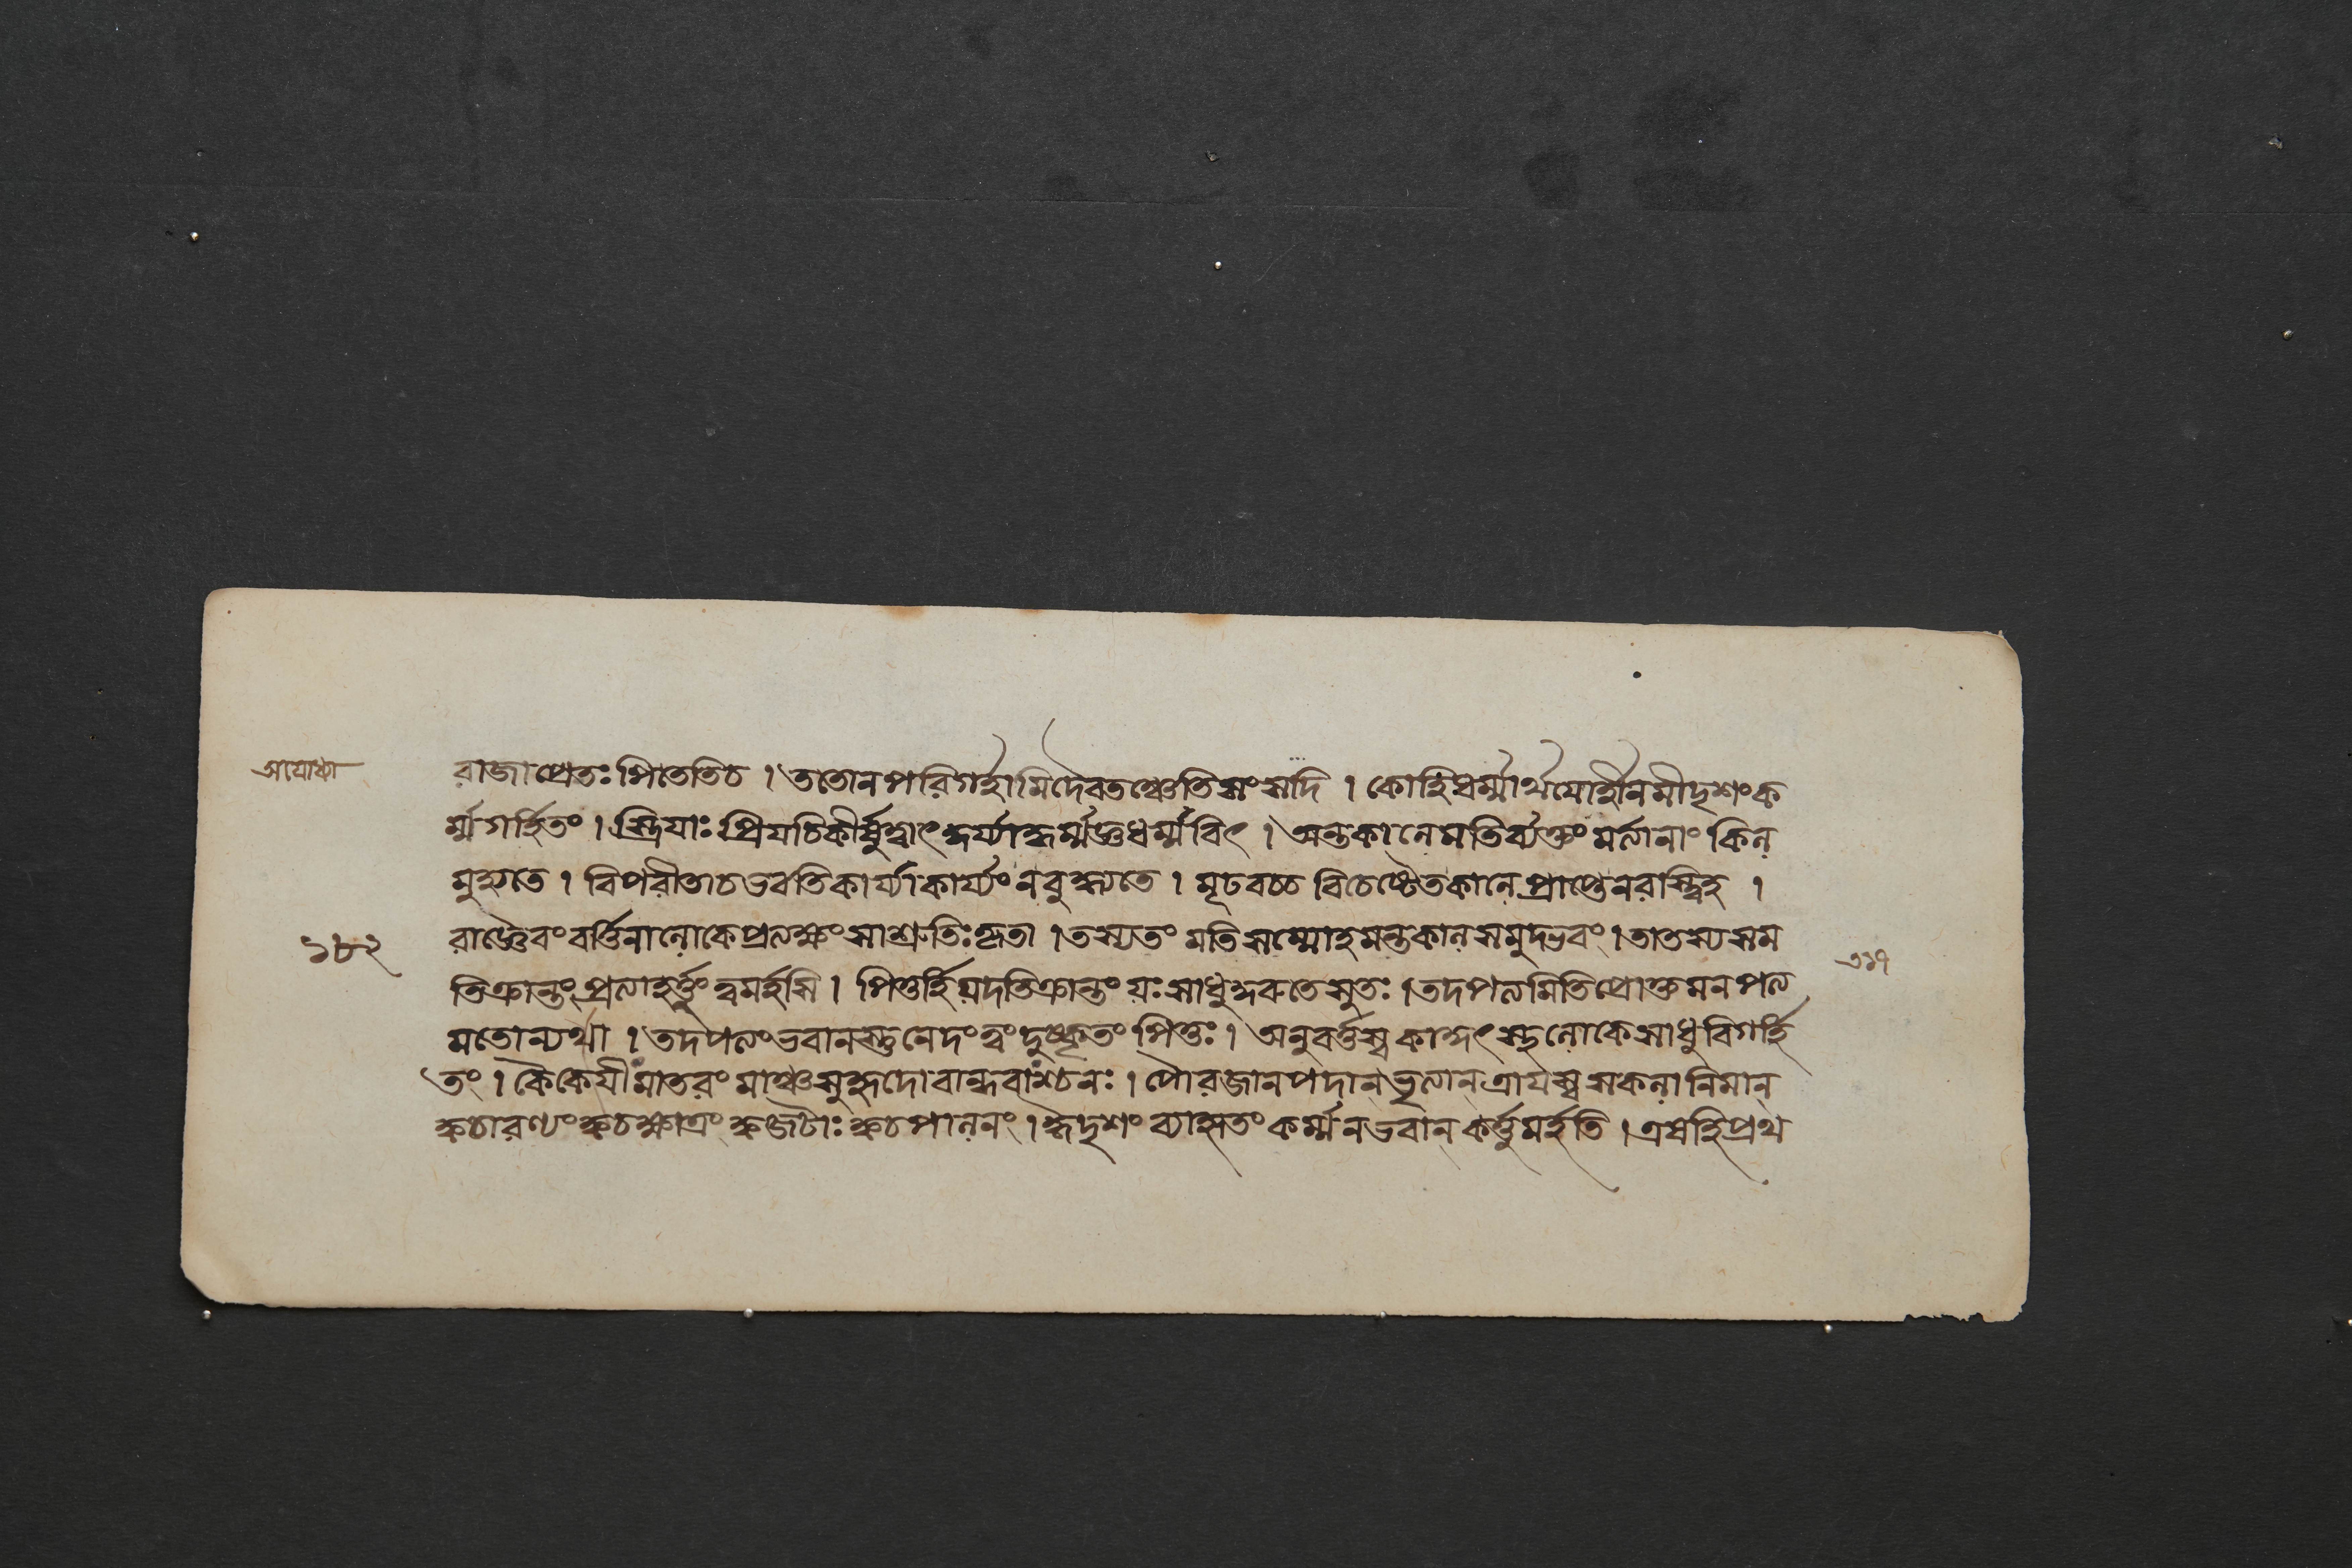 অযোধ্যা
রাজাপ্রেতঃ পিতেতিচ । ততোন পরিগর্হামিদৈবতঞ্চেতি সংসদি । কোহিধর্ম্মার্থয়োর্হীনমীদৃশংক
র্ম্মগর্হিতং । স্ত্রিযাঃ প্রিযচিকীর্ষুস্বাৎকুর্য্যাদ্ধর্ম্মজ্ঞধর্ম্মবিৎ । অন্তকালেমতিব্যক্তং মর্ত্যানাং কিল
মুহ্যতে । বিপরীতাচভবতিকার্য্যাকার্য্যং নবুধ্যতে । মূঢবচ্চ বিচেষ্টেতকালে প্রাপ্তেনরাস্ত্বিহ ।
১৮২
রাজ্ঞৈবং বর্ত্তিনালোকেপ্রত্যক্ষং সাশ্রুতিঃকৃতা । তস্যতং মতিসম্মোহমন্তকালসমুদ্ভবং । তাতস্যসম
তিক্রান্তং প্রত্যাহর্ত্তুং ত্বমর্হসি । পিতুর্হি যদতিক্রান্তং যঃ সাধুকুরুতেসুতঃ । তদপত্যমিতিপ্রোক্তমনপত্য
৩১৭
মতোন্যথা । তদপত্যংভবানস্তুনেদং ত্বং দুষ্কৃতং পিতুঃ । অনুবর্ত্তস্ব কাকুৎস্থলোকেসাধুবিগর্হি
তং । কৈকেযীংমাতরং মাঞ্চসুহৃদোবান্ধবাংশ্চনঃ । পৌরজানপদান্ ভৃত্যান্ ত্রাযস্ব সকলানিমান্
ক্বচারণ্যং ক্বচক্ষাত্রং ক্বজটাঃ ক্বচপালনং । ঈদৃশং ব্যাহতং কর্ম্ম নভবান্ কর্ত্তুমর্হতি । এষহিপ্রথ